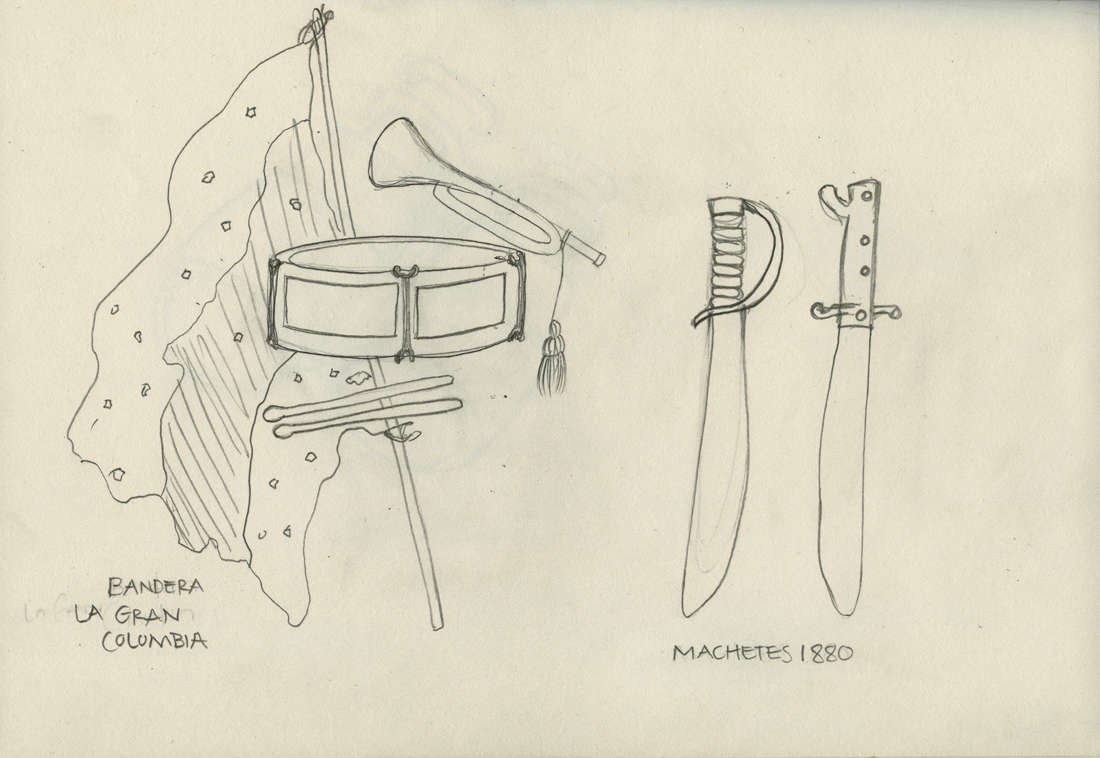 BANDERA
LA GRAN
COLOMBIA
MACHETES 1880